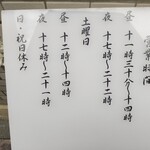 営業時間
昼 十一時三十分〜十四時
夜 十七時〜二十一時
土曜日
昼 十二時〜十四時
夜 十七時〜二十一時
日・祝日休み